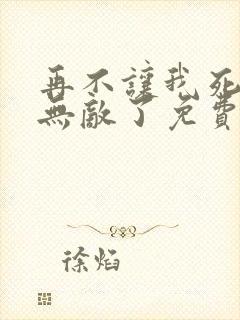 再不讓我死
無敵了免費
徐焰